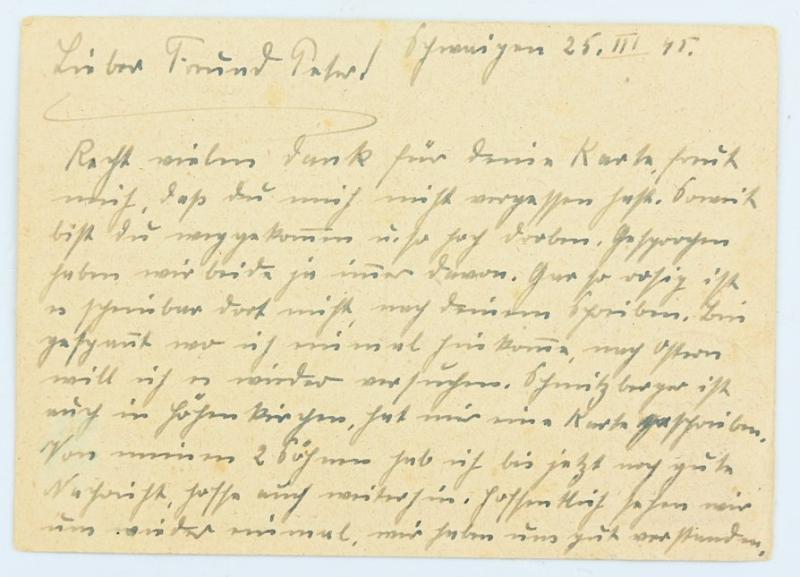 Schwaigen 25. III 41.
Lieber Freund Peter!
Recht vielen Dank für deine Karte, freut
mich, daß du mich nicht vergessen hast. Soweit
bist du weggekommen u. so hoch droben. Gesprochen
haben wir beide ja immer davon. Gar so rosig ist
es scheinbar dort nicht, nach deinem Schreiben. Bin
gespannt wo ich einmal hinkomme, nach Ostern
will ich es wieder versuchen. Schmitzberger ist
auch in Höhenkirchen, hat mir eine Karte geschrieben.
Von meinen 2 Söhnen hab ich bis jetzt noch gute
Nachricht, hoffe auch weiterhin. Hoffentlich sehen wir
uns wieder einmal, wir haben uns gut verstanden.